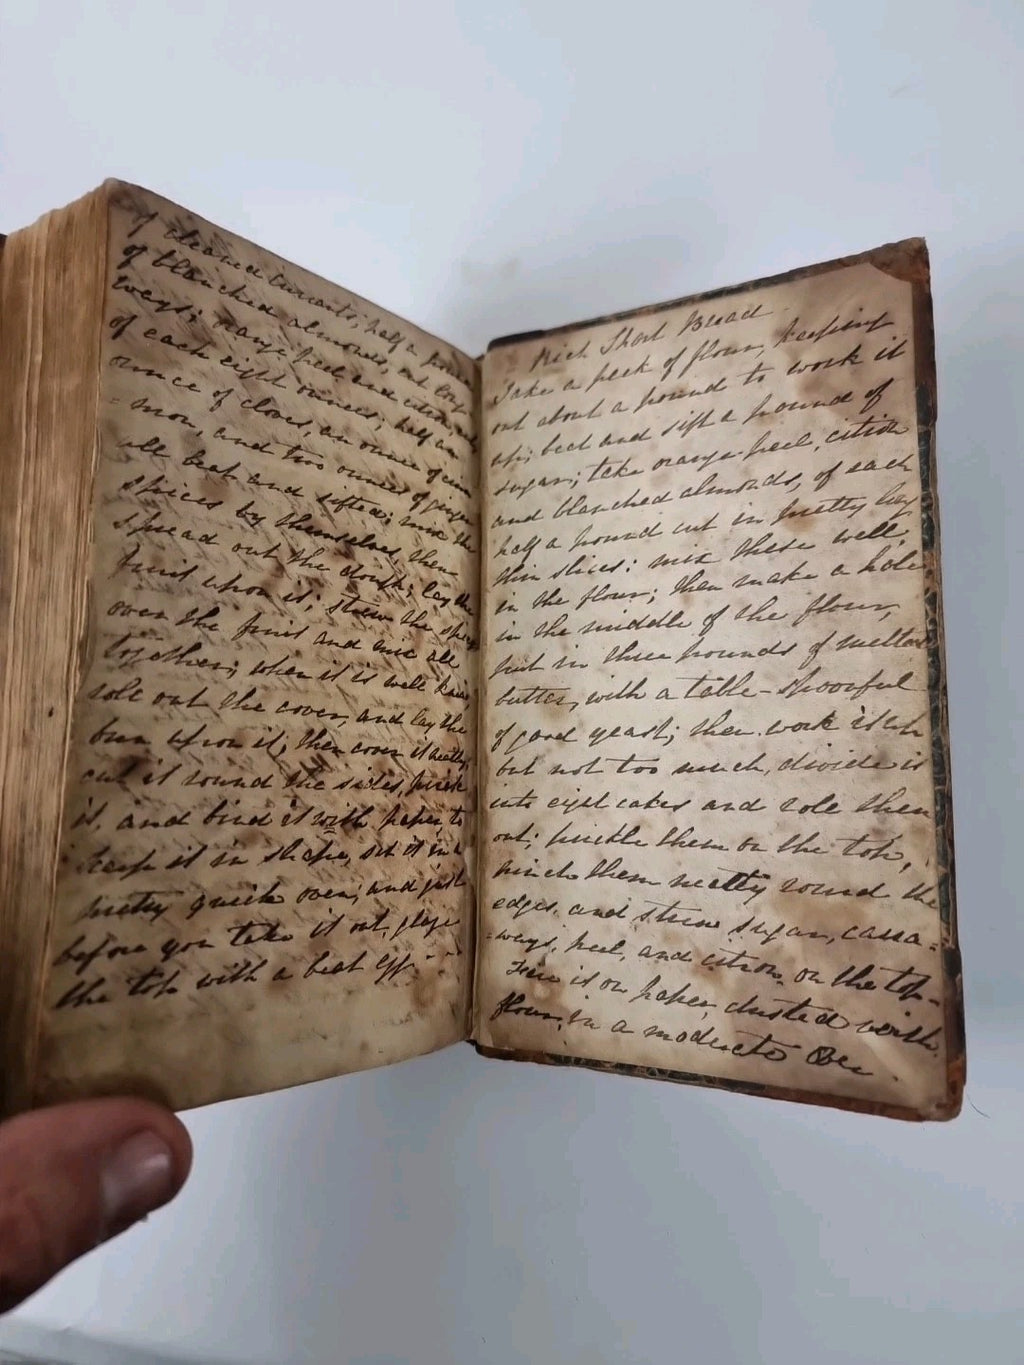 of cleaned Currants; half a pound
of blanched almonds, cut long-
ways; orange peel and citron,
of each eight ounces; half an
ounce of cloves, an ounce of cinna
=mon, and two ounces of ginger
all beat and sifted; mix the
spices by themselves, then
spread out the dough; lay the
fruit upon it; strew the spices
over the fruit and mix all
together; when it is well knead
role out the cover, and lay the
bun upon it; then cover it neatly,
cut it round the sides, prick
it, and bind it with paper, to
keep it in shape, set it in a
pretty quick oven; and just
before you take it out, glaze
the top with a beat egg.
Rich Short Bread
Take a peck of flour, keeping
out about a pound to work it
up; beat and sift a pound of
sugar; take orange-peel, citron
and blanched almonds, of each
half a pound cut in pretty long
thin slices: mix these well,
in the flour; then make a hole
in the middle of the flour,
put in three pounds of melted
butter, with a table-spoonful
of good yeast; then work it up
but not too much, divide it
into eight cakes and role them
out; prickle them on the top,
pinch them neatly round the
edges, and strew sugar, carra=
=ways, peel, and citron, on the top-
Fire it on paper, dusted with
flour, in a moderate Ove